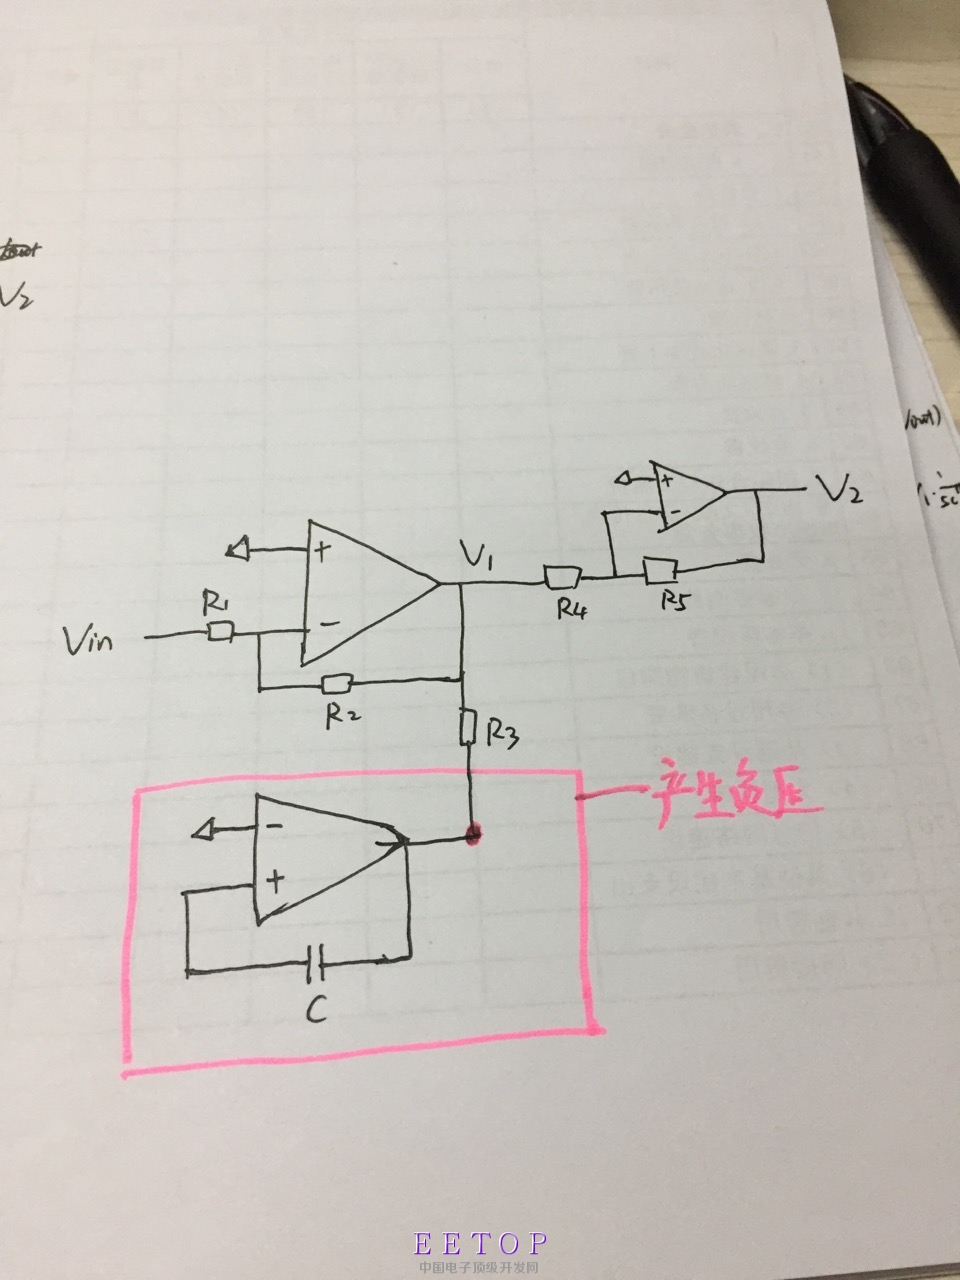 V2
V2
V1
+
-
+
-
R1
Vin
R4
R5
R2
R3
产生负压
-
+
C
EETOP
中国电子顶级开发网